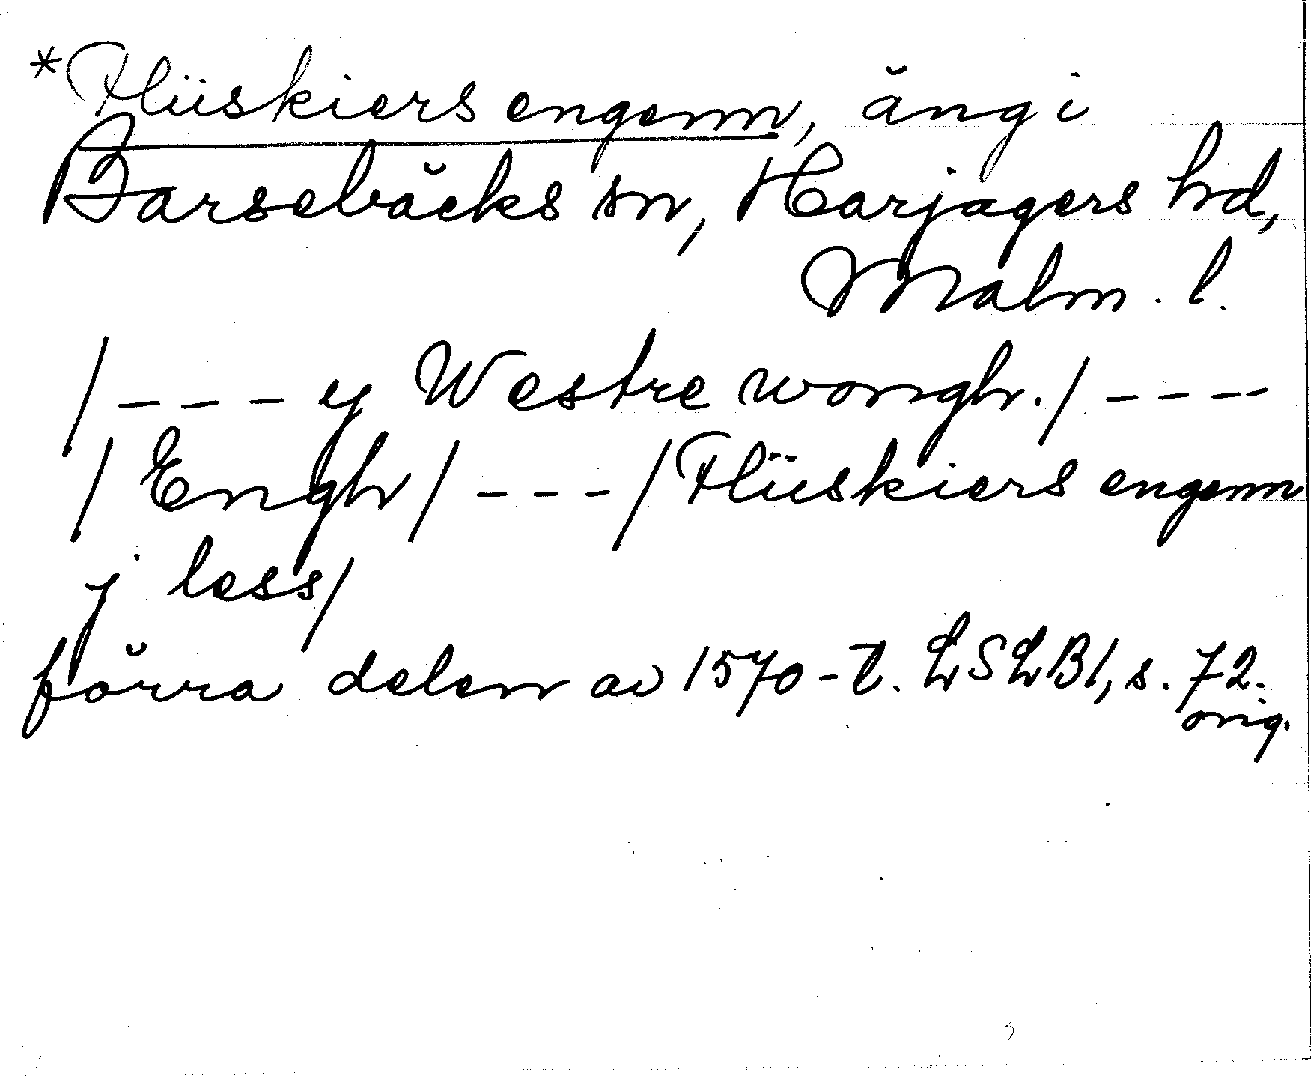 *Flüskiers engenn, äng i
Barsebäcks sn, Harjagers hd,
Malm. l.
/ _ _ _ y Westre wongh. / _ _ _ _
/ Engh / _ _ _ / Flüskiers engenn
j less/
förra delen av 1570-t. LSLB1, s. 72.
orig.